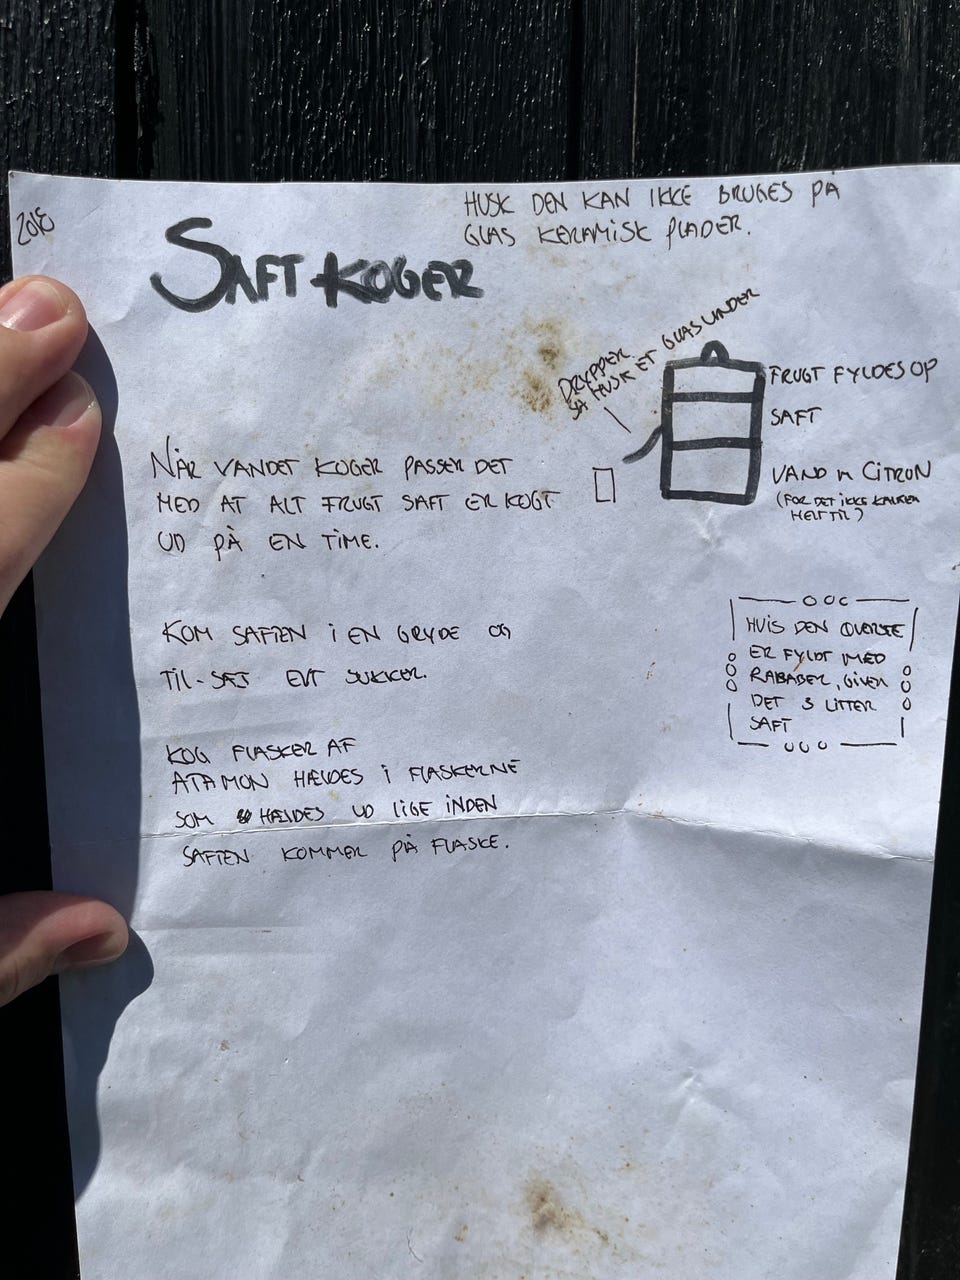 2018
HUSK DEN KAN IKKE BRUGES PÅ
GLAS KERAMISK PLADER.
SAFT KOGER
DRYPPER
SÅ HUSK ET GLAS UNDER
FRUGT FYLDES OP
SAFT
VAND M CITRON
(FOR DET IKKE KALKER
HELT TIL)
NÅR VANDET KOGER PASSER DET
MED AT ALT FRUGT SAFT ER KOGT
UD PÅ EN TIME.
KOM SAFTEN I EN GRYDE OG
TIL-SÆT EVT SUKKER.
HVIS DEN ØVERSTE
ER FYLDT MED
RABABER, GIVER
DET 3 LITTER
SAFT
KOG FLASKER AF
ATAMON HÆLDES I FLASKERNE
SOM HÆLDES UD LIGE INDEN
SAFTEN KOMMER PÅ FLASKE.